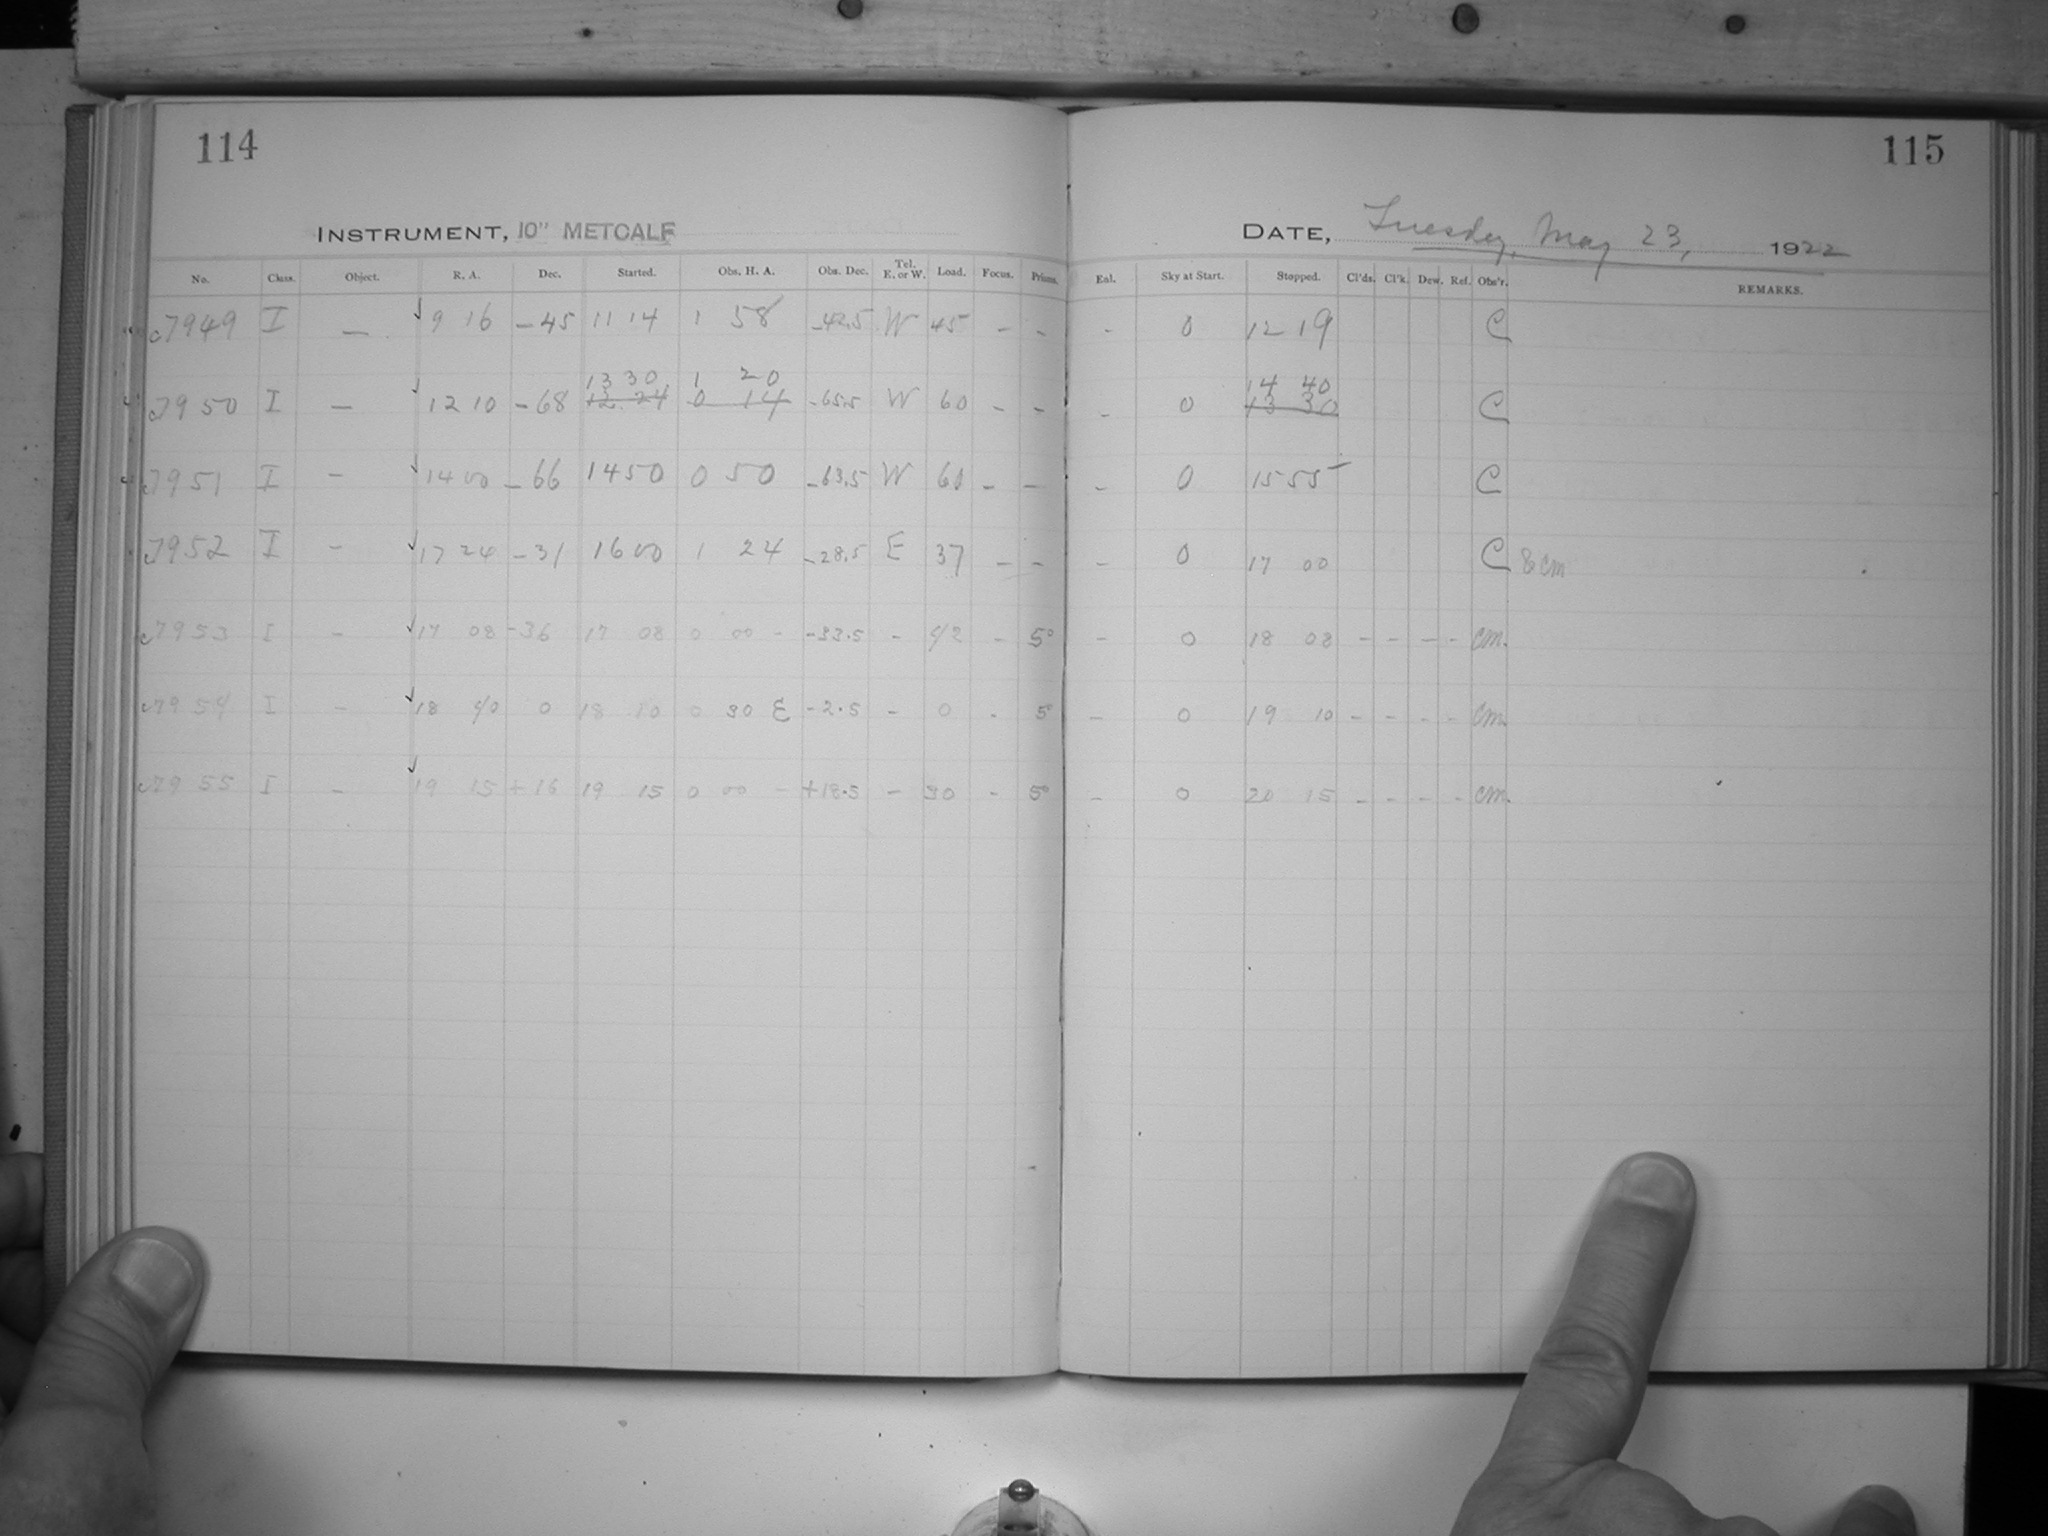 114
115
INSTRUMENT, 10" METCALF
DATE, Tuesday, May 23, 1922
No. Class. Object. R. A. Dec. Started. Obs. H. A. Obs. Dec. Tel. E. or W. Load. Focus. Prisms. Enl. Sky at Start. Stopped. Cl'ds. Cl'k. Dew. Ref. Obs'r. REMARKS.
c7949 I — 9 16 -45 11 14 1 58 -42.5 W 45 - - - 0 12 19 C
13 30 1 20 14 40
c7950 I — 12 10 -68 12 24 0 14 -65.5 W 60 - - - 0 13 30 C
c7951 I - 14 00 -66 14 50 0 50 -63.5 W 60 - - - 0 15 55 C
c7952 I - 17 24 -31 16 00 1 24 -28.5 E 37 - - - 0 17 00 C & cm
c7953 I - 17 08 -36 17 08 0 00 - -33.5 - 42 - 5° - 0 18 08 - - - - cm.
c7954 I - 18 40 0 18 10 0 30 E -2.5 - 0 - 5° - 0 19 10 - - - - cm.
c7955 I - 19 15 +16 19 15 0 00 - +18.5 - 30 - 5° - 0 20 15 - - - - cm.